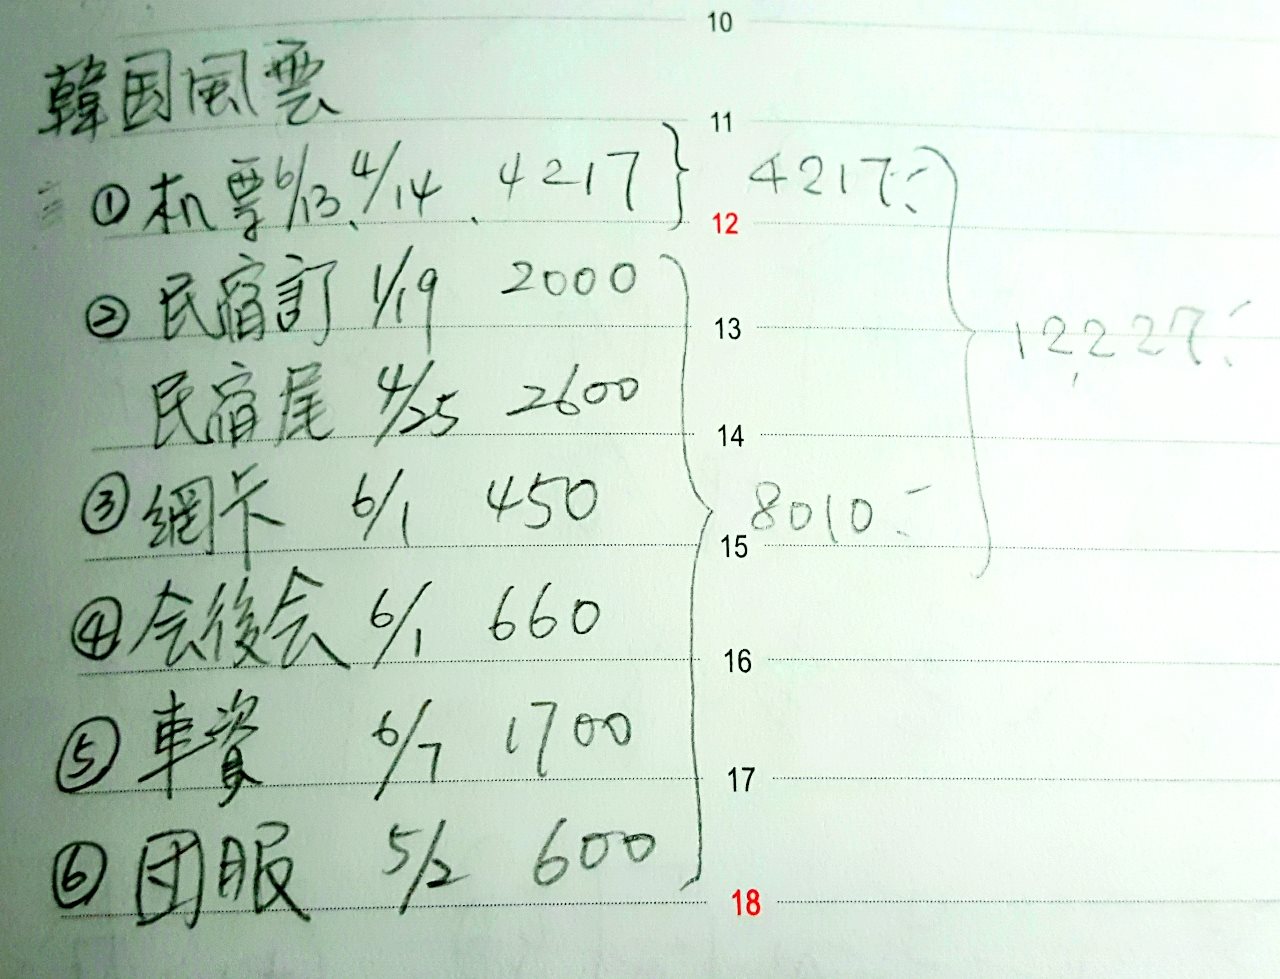 10
韓国風雲
11
①机票6/13、4/14、4217 } 4217.-
12
②民宿訂 1/19 2000
13 12,227.-
民宿尾 4/25 2600
14
③網卡 6/1 450
8010.-
15
④会後会 6/1 660
16
⑤車資 6/7 1700
17
⑥団服 5/2 600
18